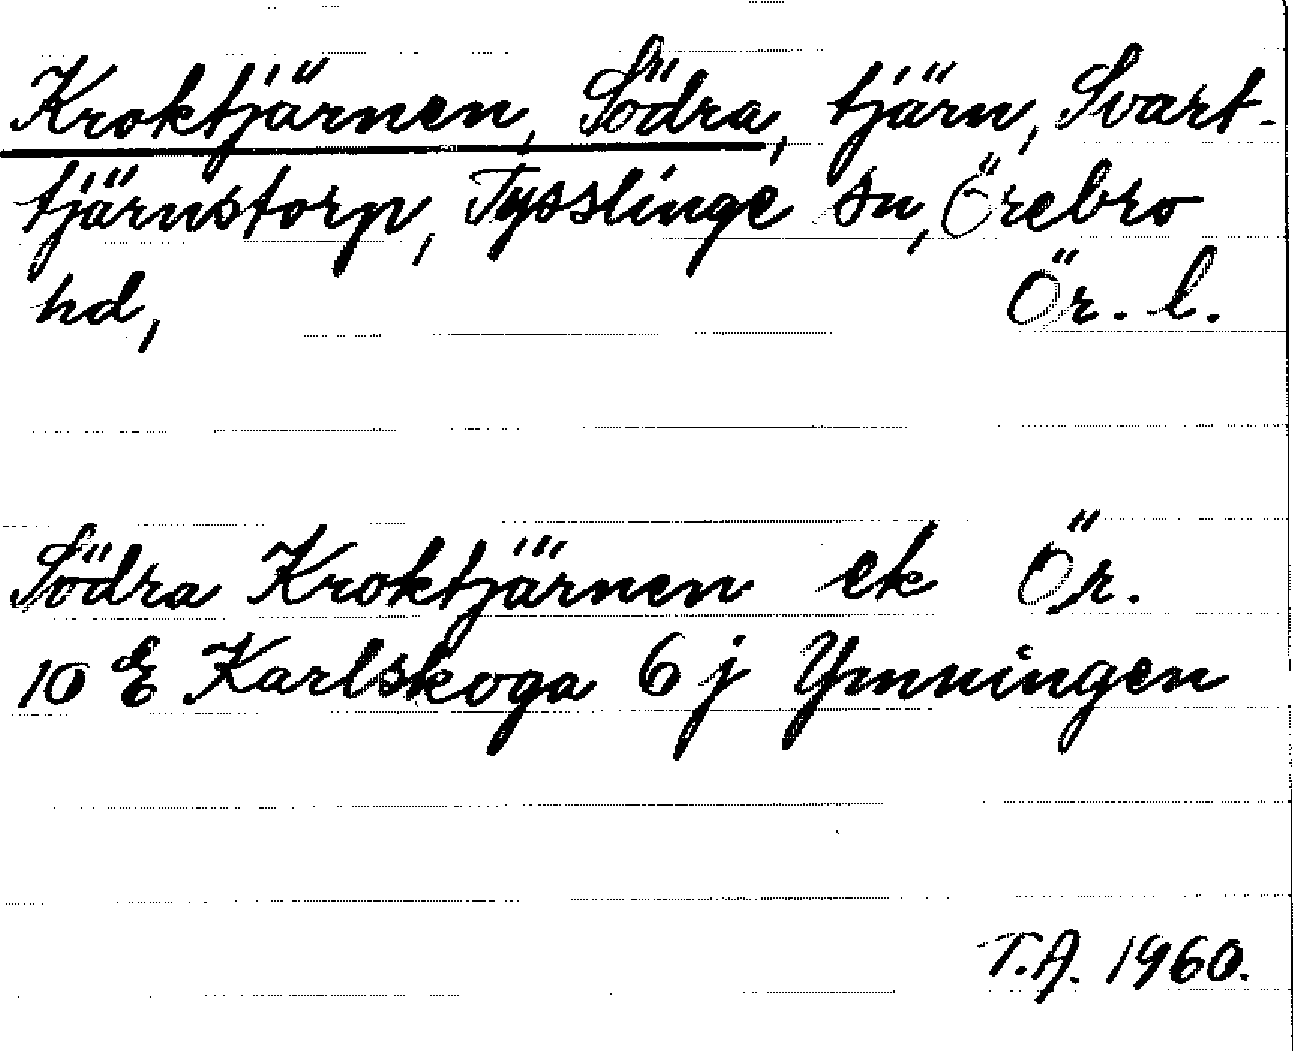 Kroktjärnen, Södra, tjärn, Svart-
tjärnstorp, Tysslinge sn, Örebro
hd, Ör. l.
Södra Kroktjärnen ek Ör.
10 E Karlskoga 6 j Ymningen
T.A. 1960.